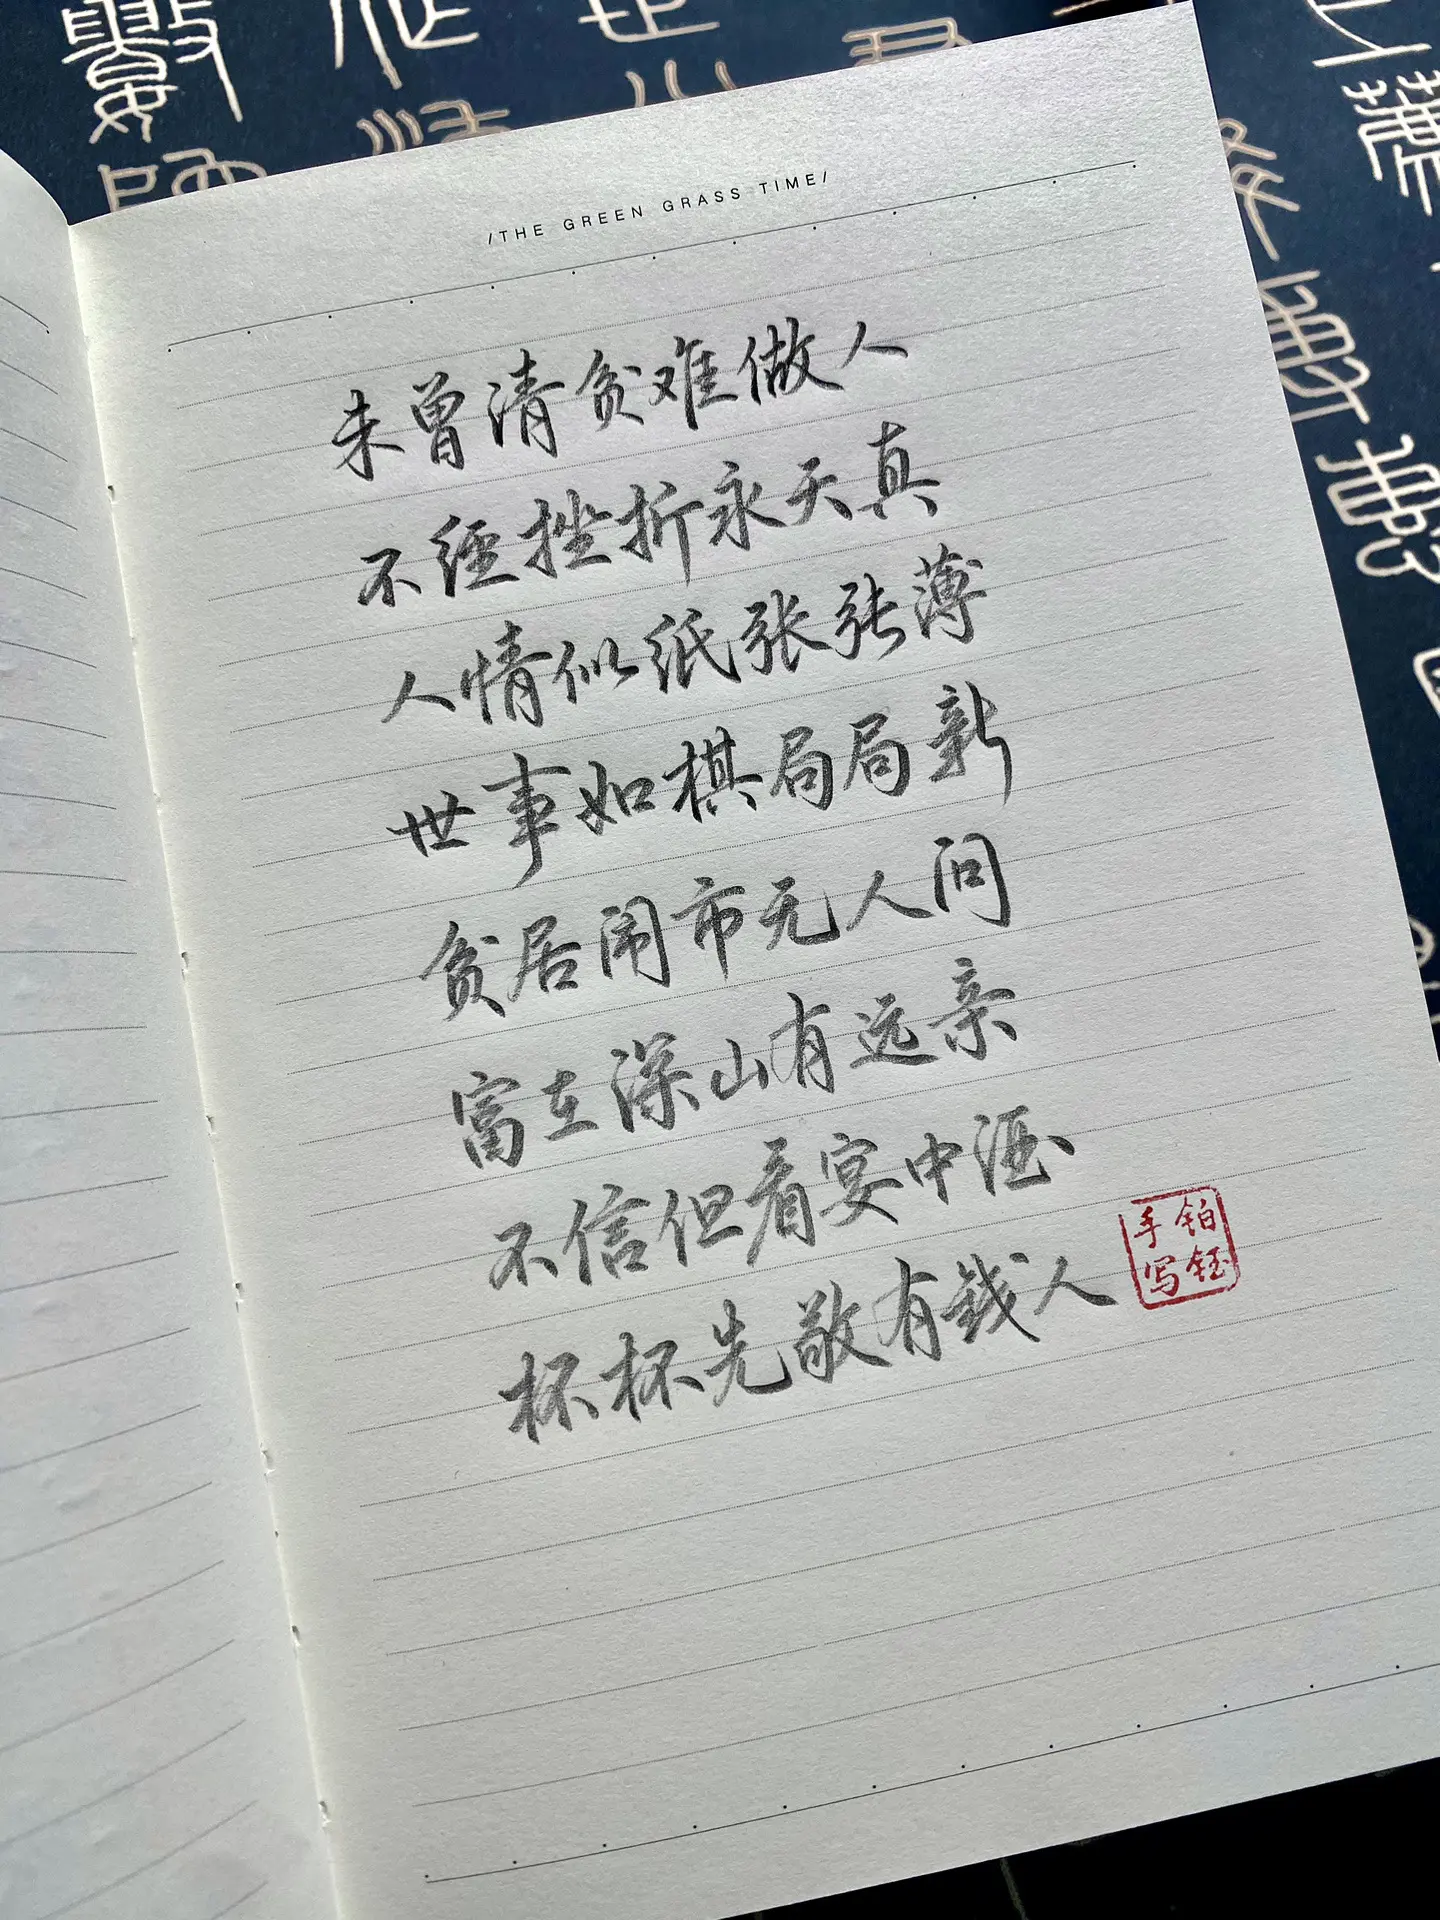 /THE GREEN GRASS TIME/
未曾清贫难做人
不经挫折永天真
人情似纸张张薄
世事如棋局局新
贫居闹市无人问
富在深山有远亲
不信但看宴中酒
杯杯先敬有錢人
铂钰
手写